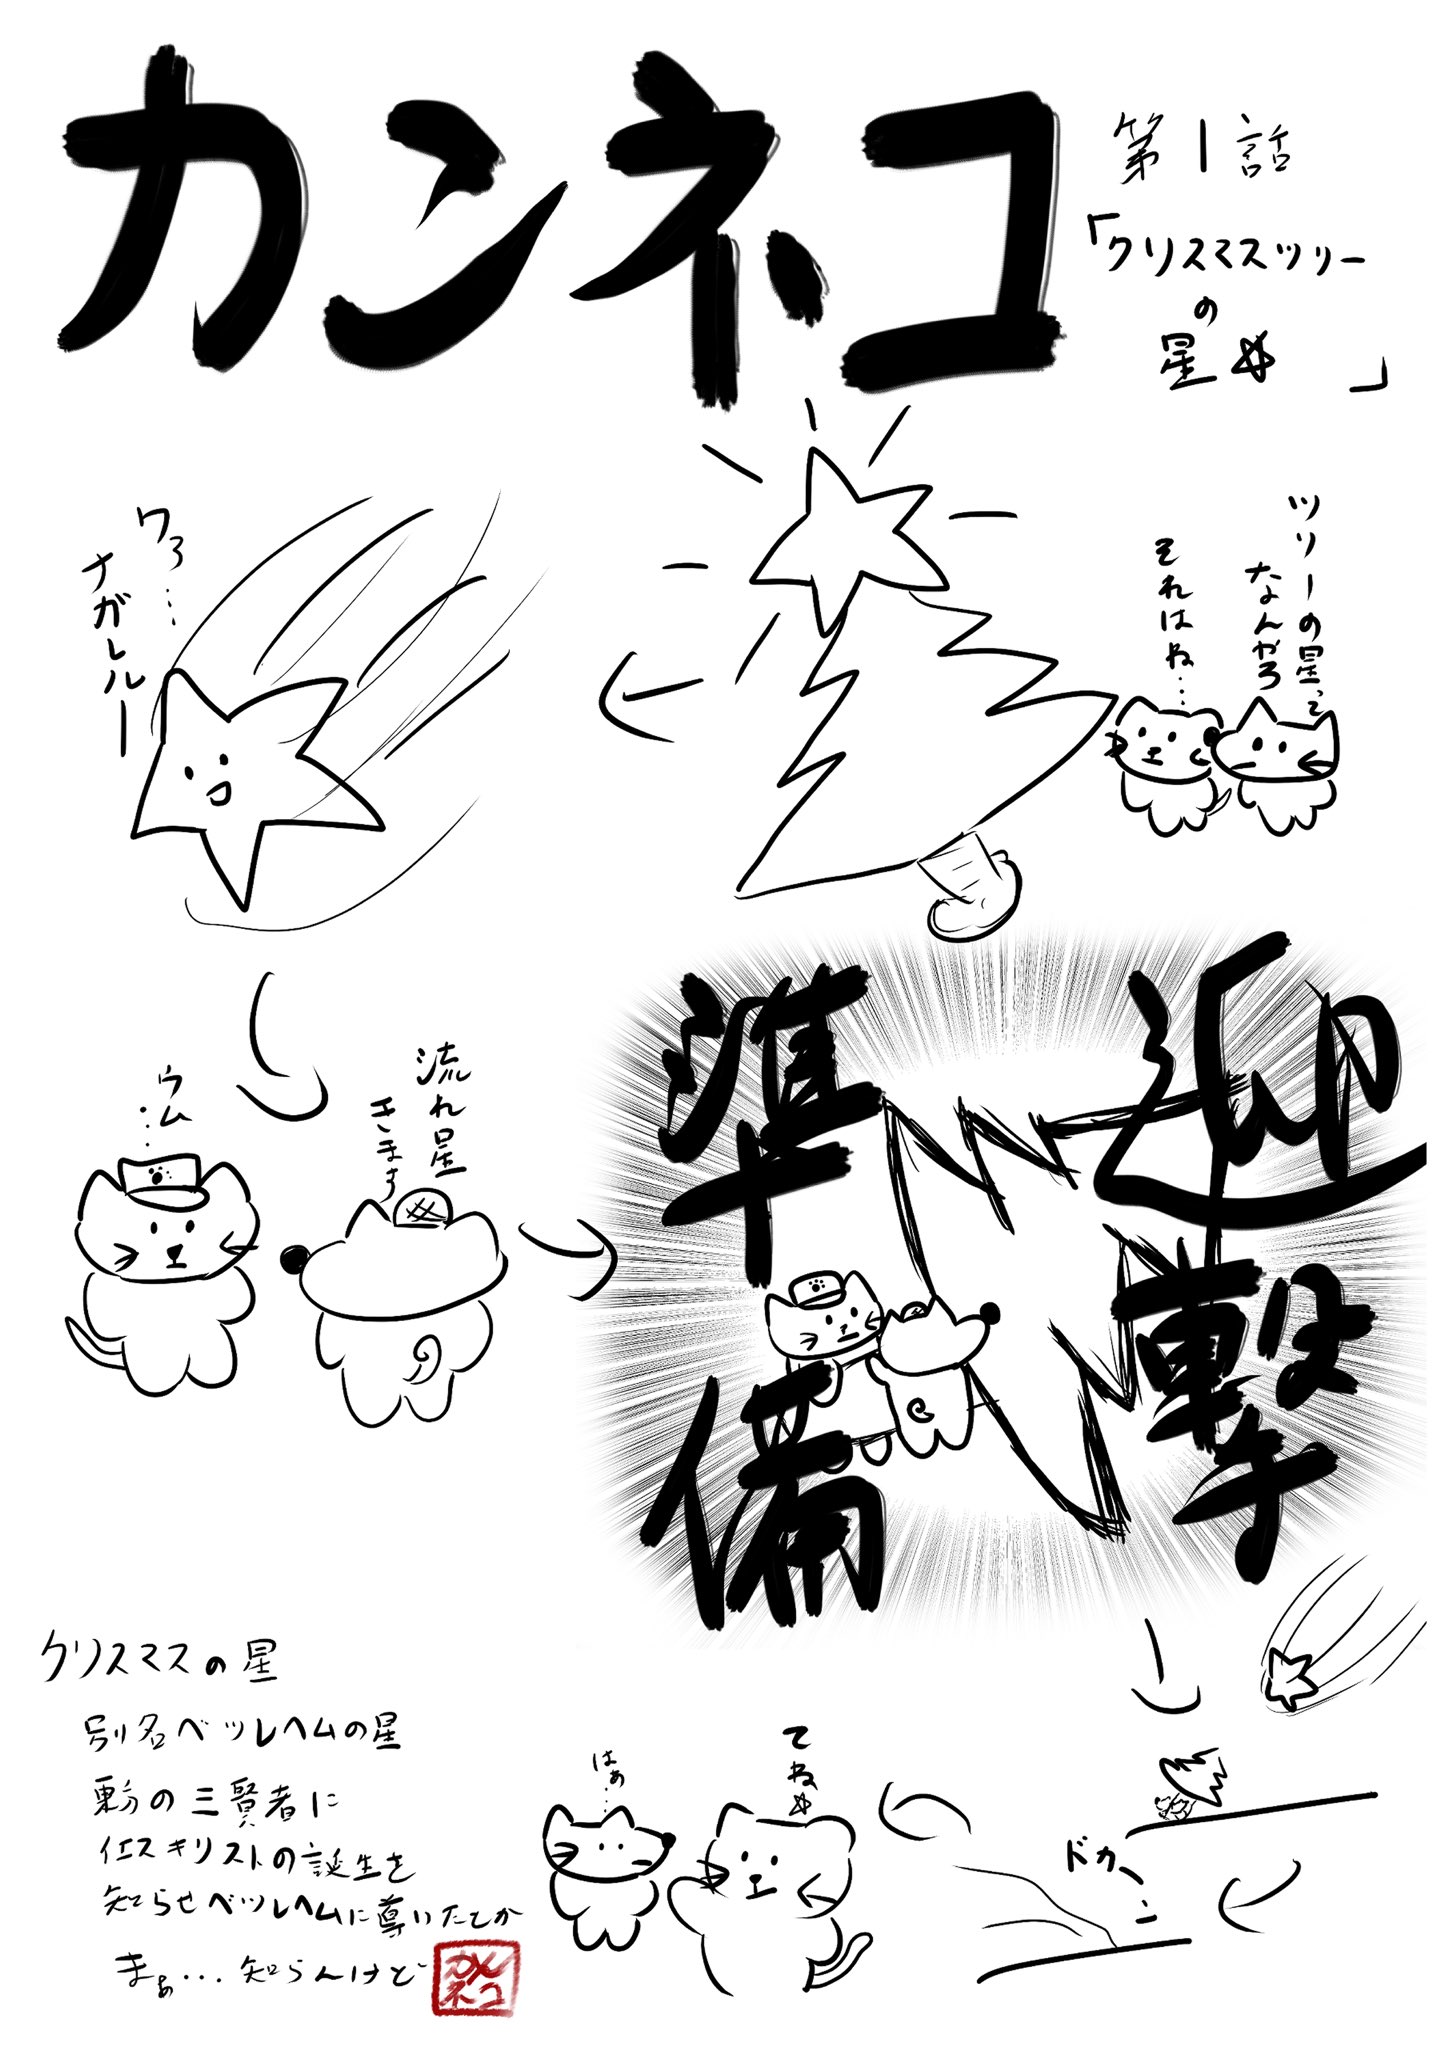 カンネコ
第1話
「クリスマスツリー
の
星☆」
ツリーの星って
なんかろ
それはね…
ワろ…
ナガレルー
流れ星
きます
ウム…
迎撃
準備
ドカーン
てね☆
はぁ…
クリスマスの星
別名ベツレヘムの星
東方の三賢者に
イエスキリストの誕生を
知らせベツレヘムに導いたとか
まぁ…知らんけど
カン
ネコ